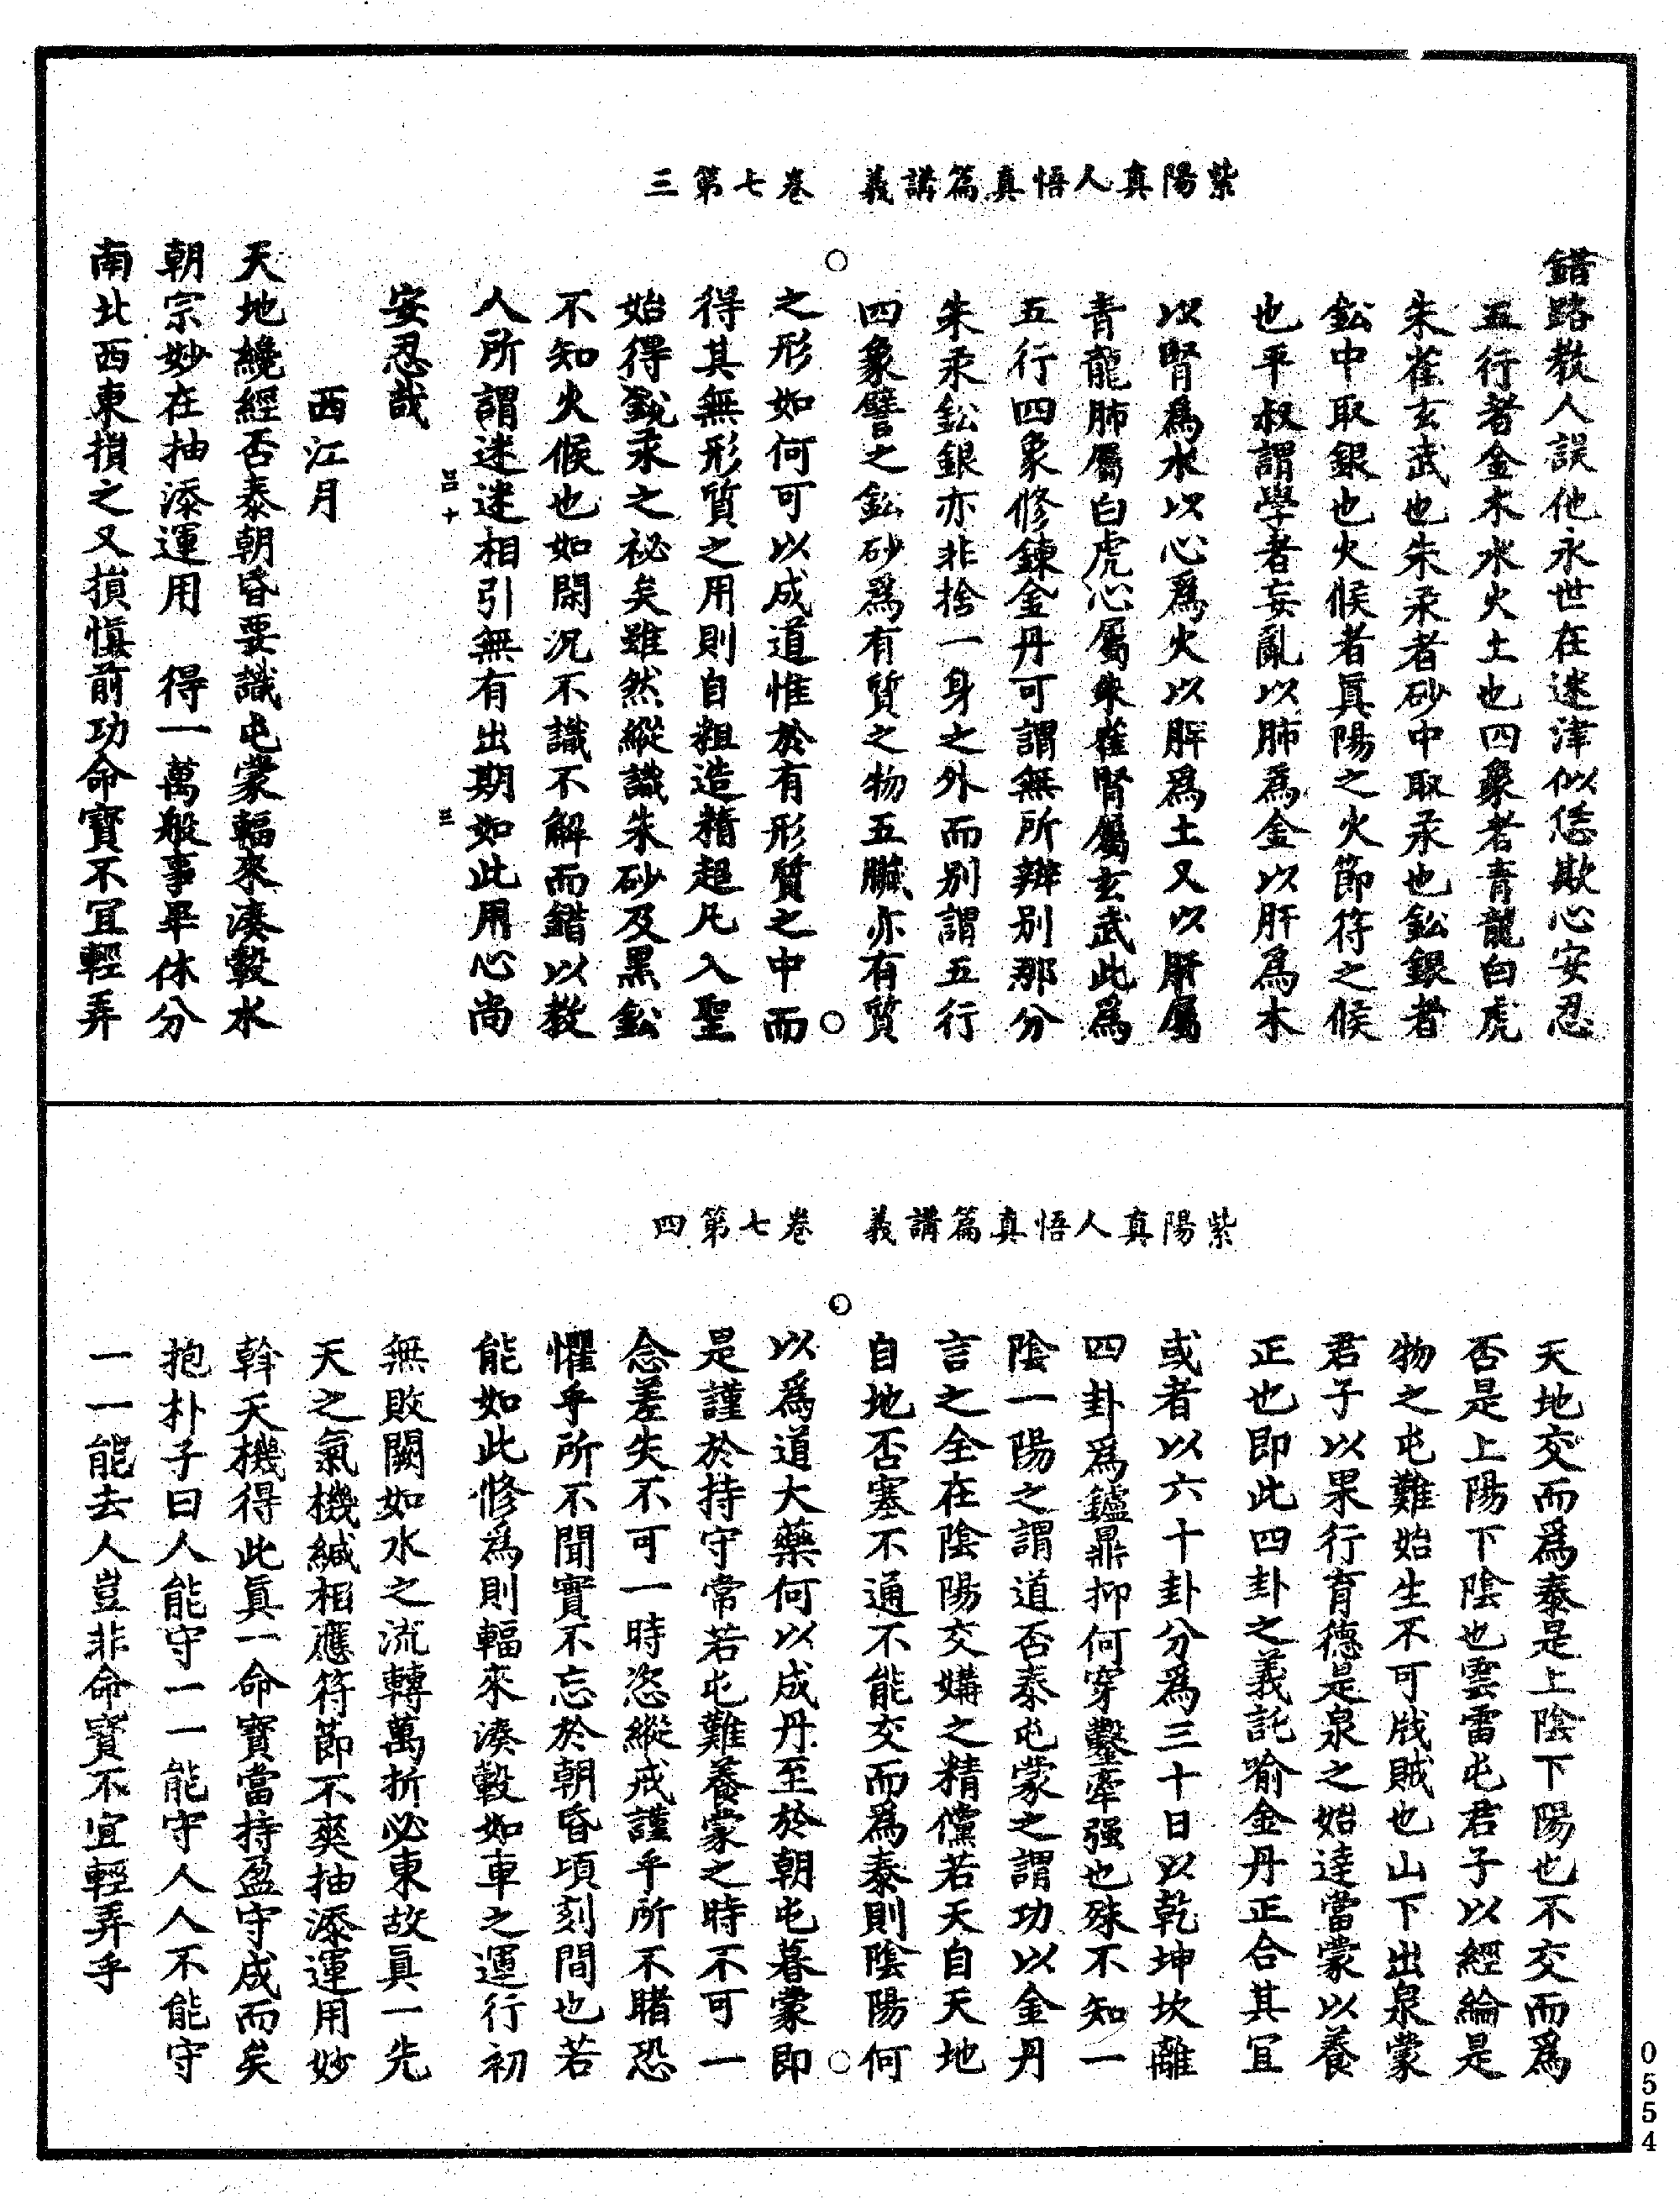 紫陽真人悟真篇講義　卷七第三
錯路教人誤他永世在迷津似恁欺心安忍
五行者金木水火土也四象者青龍白虎
朱雀玄武也朱汞者砂中取汞也鈆銀者
鈆中取銀也火候者眞陽之火節符之候
也平叔謂學者妄亂以肺爲金以肝爲木
以腎爲水以心爲火以脾爲土又以肝屬
青龍肺屬白虎心屬朱雀腎屬玄武此爲
五行四象修鍊金丹可謂無所辨别那分
朱汞鈆銀亦非捨一身之外而别謂五行
四象譬之鈆砂爲有質之物五臟亦有質
之形如何可以成道惟於有形質之中而
得其無形質之用則自粗造精超凡入聖
始得鈆汞之祕矣雖然縱識朱砂及黑鈆
不知火候也如閑況不識不解而錯以教
人所謂迷迷相引無有出期如此用心尚
安忍哉
西江月
天地纔經否泰朝昏要識屯蒙輻來湊轂水
朝宗妙在抽添運用　得一萬般事畢休分
南北西東損之又損愼前功命寳不宜輕弄
紫陽真人悟真篇講義　卷七第四
天地交而爲泰是上陰下陽也不交而爲
否是上陽下陰也雲雷屯君子以經綸是
物之屯難始生不可戕賊也山下出泉蒙
君子以果行育德是泉之始達當蒙以養
正也即此四卦之義託喻金丹正合其宜
或者以六十卦分爲三十日以乾坤坎離
四卦爲鑪鼎抑何穿鑿牽强也殊不知一
陰一陽之謂道否泰屯蒙之謂功以金丹
言之全在陰陽交媾之精儻若天自天地
自地否塞不通不能交而爲泰則陰陽何
以爲道大藥何以成丹至於朝屯暮蒙即
是謹於持守常若屯難養蒙之時不可一
念差失不可一時恣縱戒謹乎所不睹恐
懼乎所不聞實不忘於朝昏頃刻間也若
能如此修爲則輻來湊轂如車之運行初
無敗闕如水之流轉萬折必東故眞一先
天之氣機緘相應符節不爽抽添運用妙
斡天機得此眞一命寳當持盈守成而矣
抱朴子曰人能守一一能守人人不能守
一一能去人豈非命寳不宜輕弄乎
0554